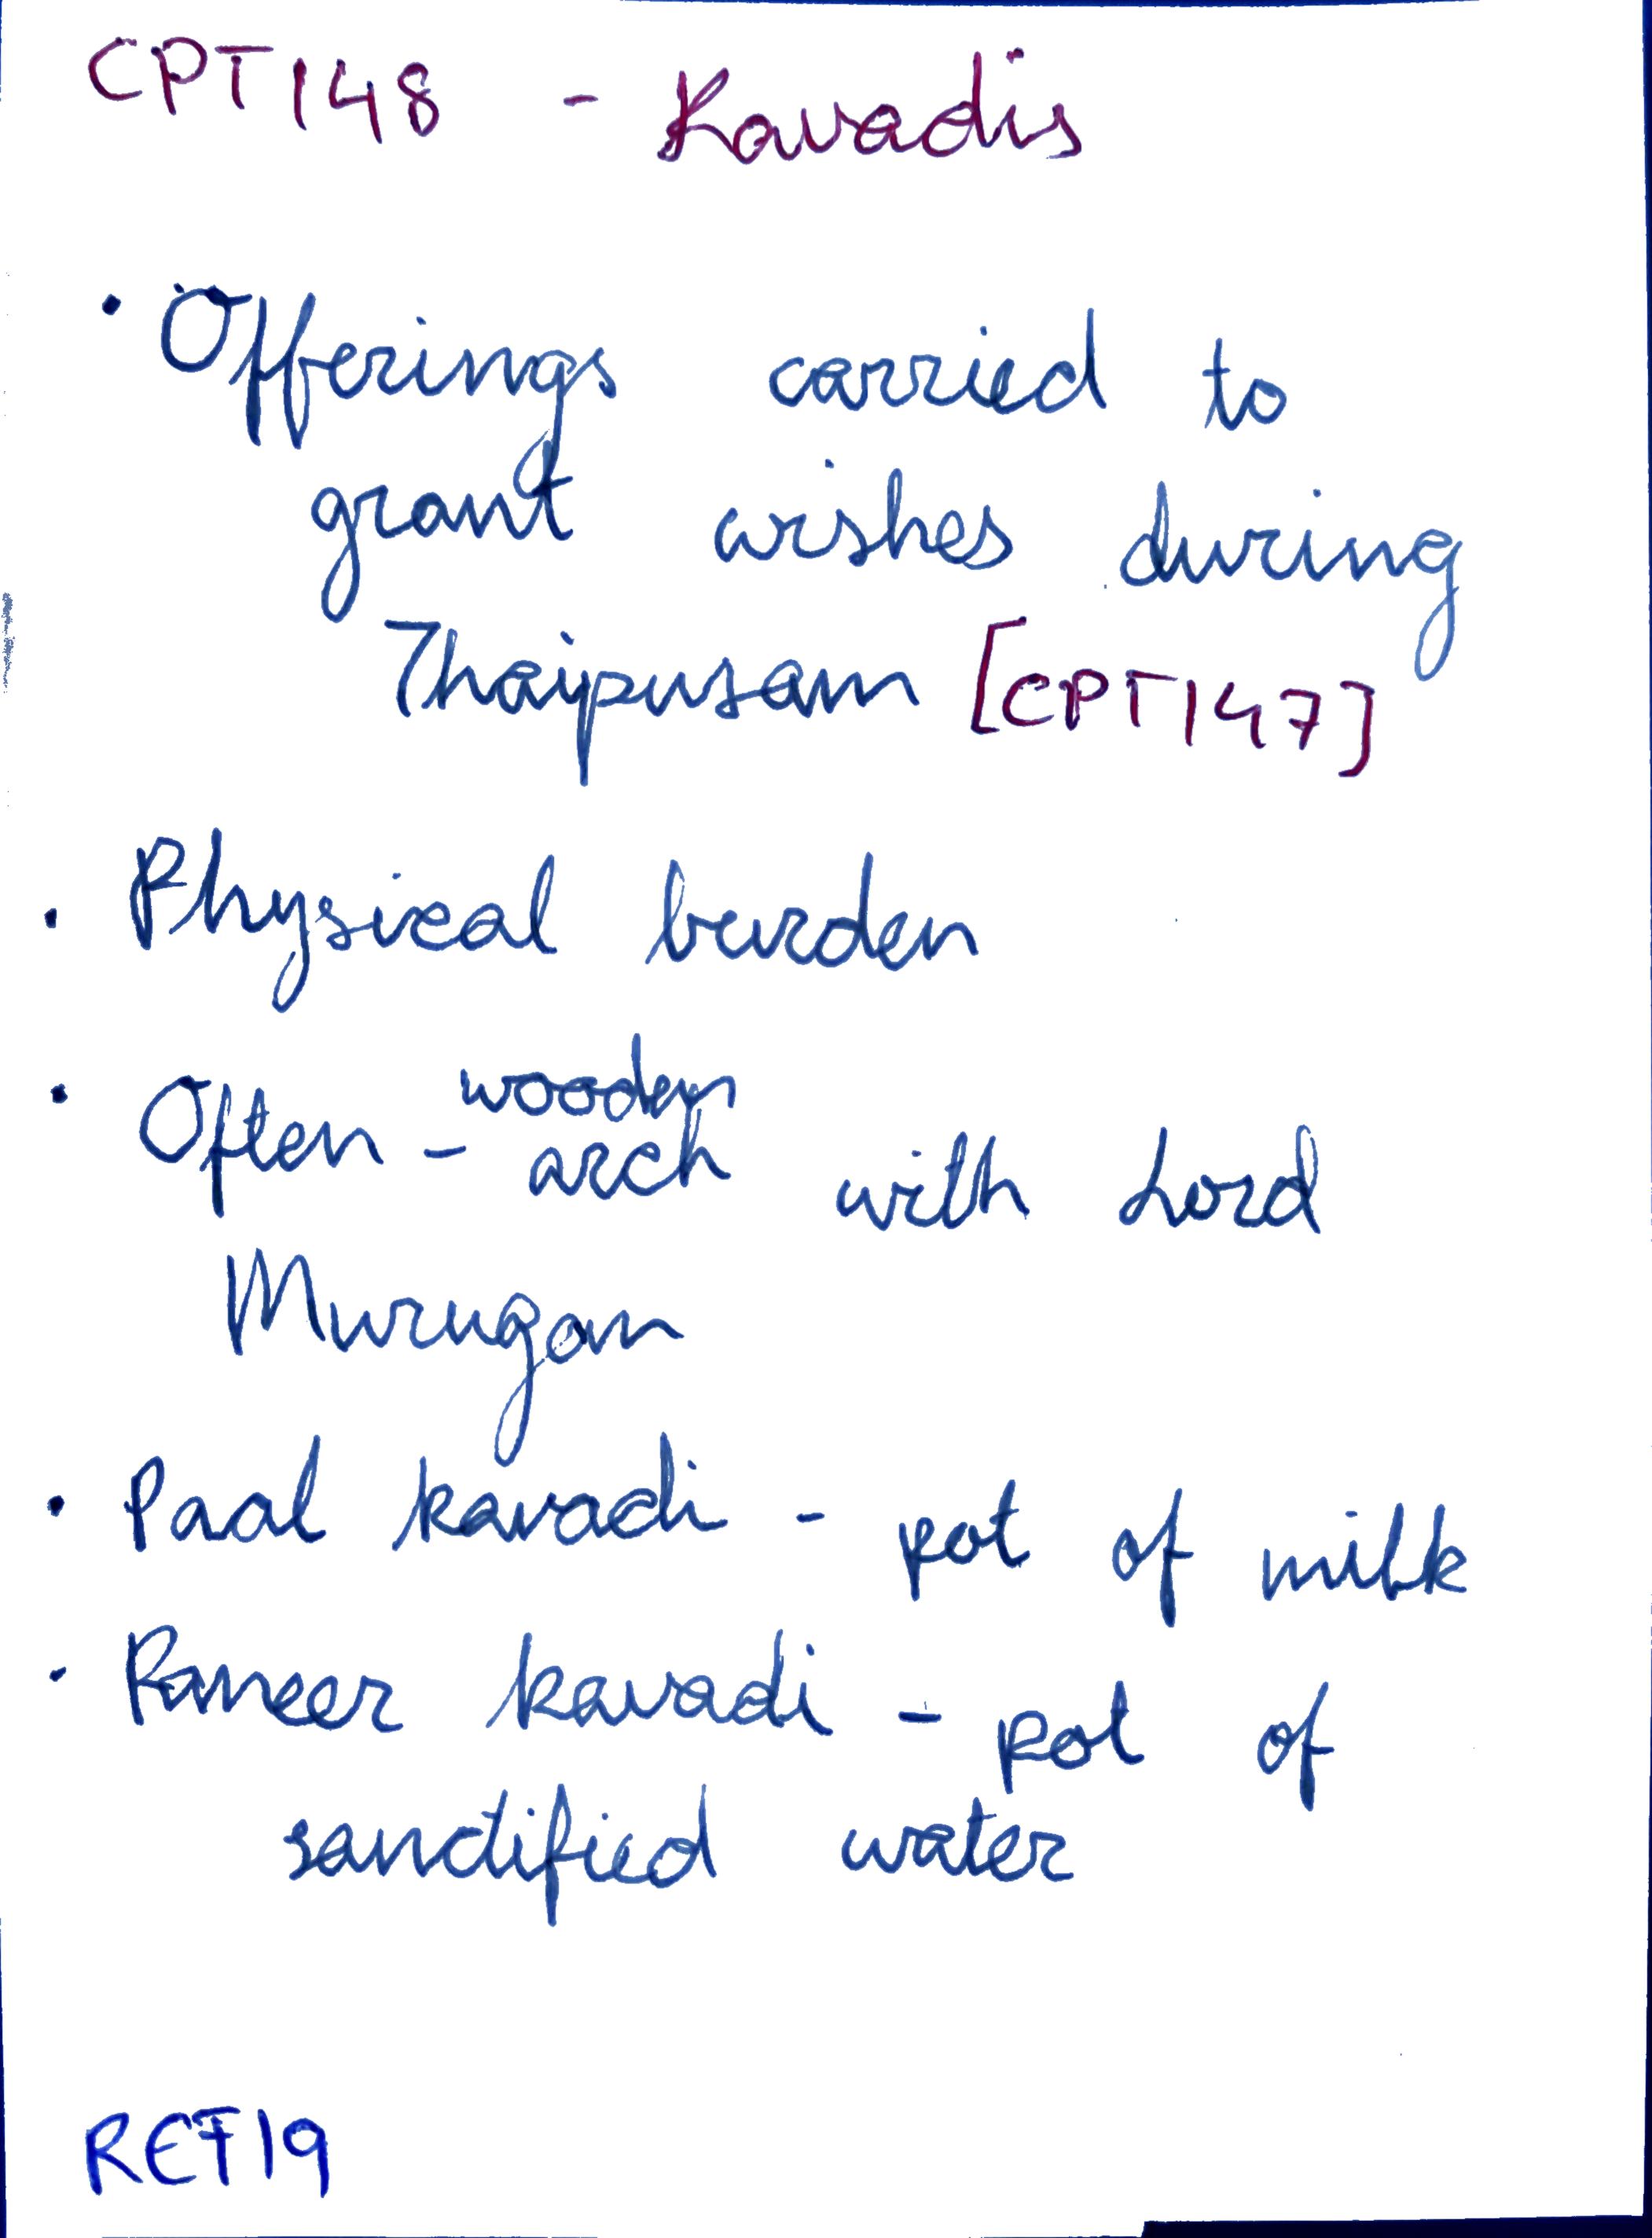 CPT148 - Kavadis
• Offerings carried to
grant wishes during
Thaipusam [CPT147]
• Physical burden
• Often - wooden
arch with Lord
Murugan
• Paal kavadi - pot of milk
• Paneer kavadi - pot of
sanctified water
REF19